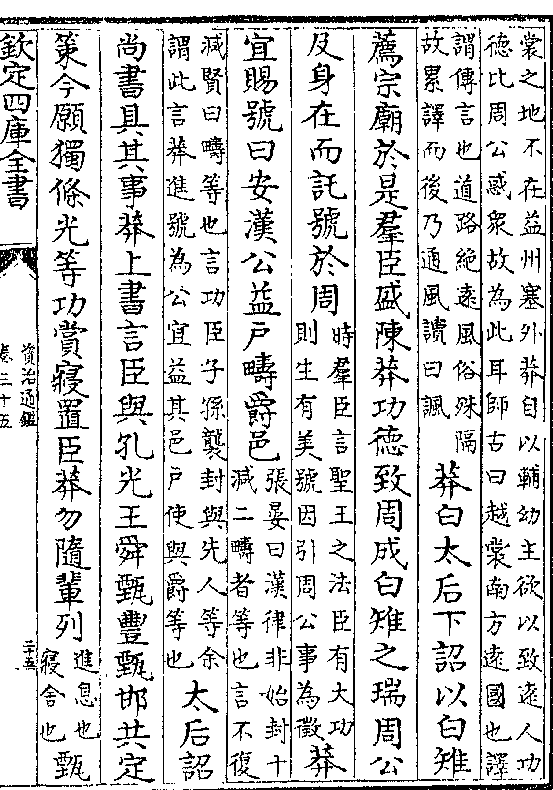 裳之地不在益州塞外莽自以輔幼主欲以致逺人功
德比周公惑衆故為此耳師古曰越裳南方逺國也譯
謂傳言也道路絶逺風俗殊隔
故累譯而後乃通風讀曰諷
莽白太后下詔以白雉
薦宗廟於是羣臣盛陳莽功德致周成白雉之瑞周公
及身在而託號於周
時羣臣言聖王之法臣有大功
則生有美號因引周公事為徵
莽
宜賜號曰安漢公益戶疇爵邑
張晏曰漢律非始封十
減二疇者等也言不復
減賢曰疇等也言功臣子孫襲封與先人等余
謂此言莽進號為公宜益其邑戶使與爵等也
太后詔
尚書具其事莽上書言臣與孔光王舜甄豐甄邯共定
策今願獨條光等功賞寢置臣莽勿隨輩列
進息也
寢舍也
甄
欽定四庫全書
資治通鑑
卷三十五
三十五